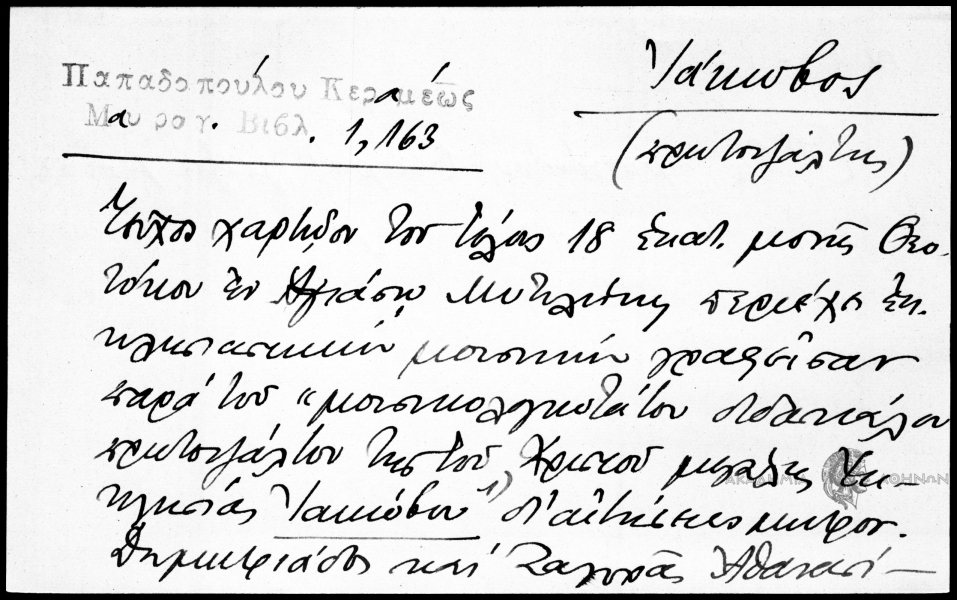 Παπαδοπούλου Κεραμέως
Μαυρογ. Βιβλ. 1, 163
Ἰάκωβος
(πρωτοψάλτης)
Τεῦχος χαρτῷον τοῦ τέλους 18 ἑκατ. μονῆς Θεο-
τόκου ἐν Ἀγιάσῳ Μυτιλήνης περιέχει ἐκ-
κλησιαστικὴν μουσικὴν γραφεῖσαν
παρὰ τοῦ "μουσικολογιωτάτου διδασκάλου
πρωτοψάλτου τῆς τοῦ Χριστοῦ μεγάλης Ἐκ-
κλησίας Ἰακώβου 1) δι' αἰτήσεως μητροπ.
Δημητριάδος καὶ Ζαγορᾶς Ἀθανασί-
ΑΚΑΔΗΜΙΑ ΑΘΗΝΩΝ